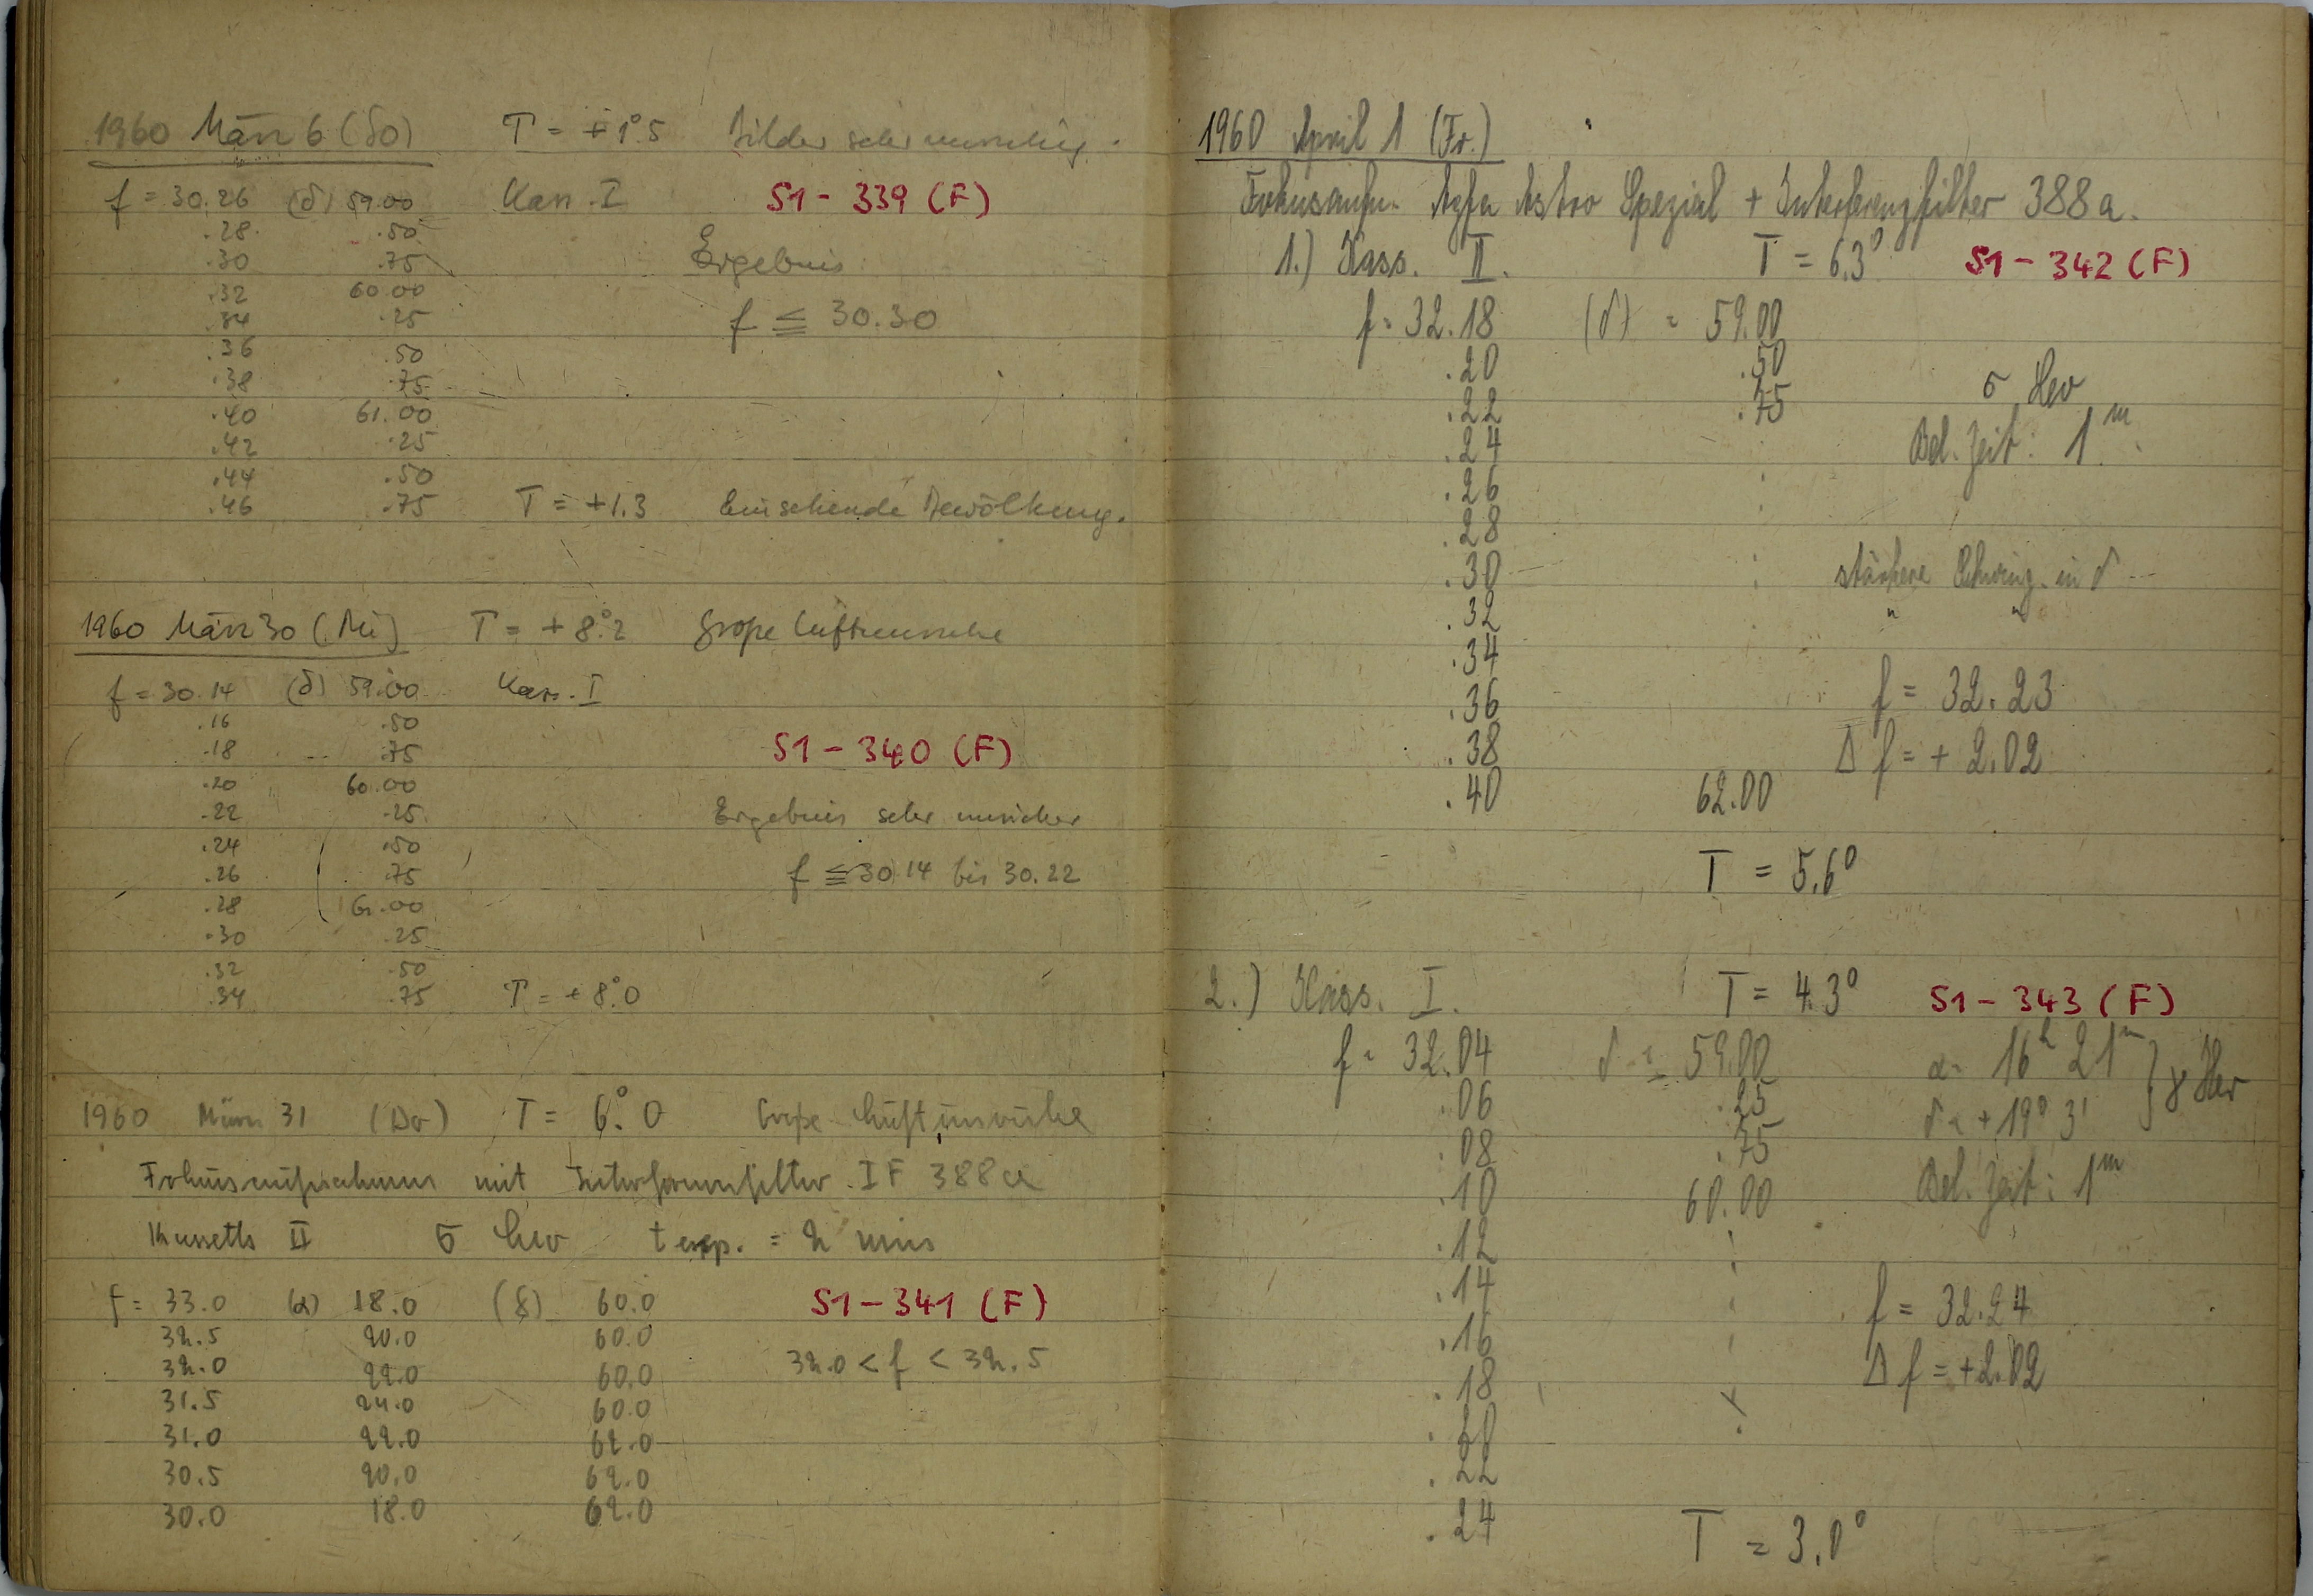 1960 März 6 (So) T = +1°.5 Bilder sehr unruhig.
f = 30.26 (δ) 59.00 Kass. I S1 - 339 (F)
.28 .50
.30 .75 Ergebnis:
.32 60.00
.34 .25 f ≦ 30.30
.36 .50
.38 .75
.40 61.00
.42 .25
.44 .50
.46 .75 T = +1.3 Einsetzende Bewölkung.
1960 März 30 (Mi) T = +8°.2 große Luftunruhe
f = 30.14 (δ) 59.00 Kass. I
.16 .50
.18 .75 S1 - 340 (F)
.20 60.00
.22 .25 Ergebnis sehr unsicher
.24 .50
.26 .75 f ≦ 30.14 bis 30.22
.28 61.00
.30 .25
.32 .50
.34 .75 T = +8°.0
1960 März 31 (Do) T = 6°.0 Große Luftunruhe
Fokusaufnahmen mit Interferenzfilter IF 388a
Kassette II σ Leo t exp. = 2 min
f = 33.0 (α) 18.0 (δ) 60.0 S1 - 341 (F)
32.5 20.0 60.0
32.0 22.0 60.0 32.0 < f < 32.5
31.5 24.0 60.0
31.0 22.0 62.0
30.5 20.0 62.0
30.0 18.0 62.0
1960 April 1 (Fr.)
Fokusaufn. Agfa Astro Spezial + Interferenzfilter 388a.
1.) Kass. II. T = 6.3° S1 - 342 (F)
f = 32.18 (δ) = 59.00
.20 .50
.22 .75 σ Leo
.24 Bel. Zeit: 1m
.26
.28
.30 stärkere Schwing. in δ
.32 " "
.34
.36 f = 32.23
.38 Δ f = + 2.02
.40 62.00
T = 5.6°
2.) Kass. I. T = 4.3° S1 - 343 (F)
f = 32.04 δ = 59.00 α = 16h 21m
.06 .25 δ = +19° 3' } γ Her
.08 .75
.10 60.00 Bel. Zeit: 1m
.12
.14 f = 32.24
.16
.18 Δ f = +2.02
.20
.22
.24 T = 3.0°